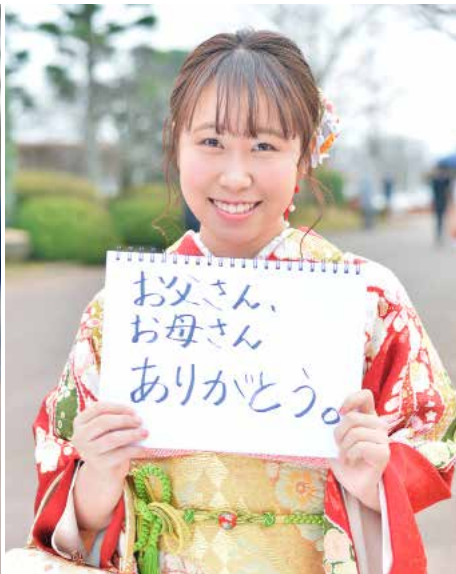 お父さん、
お母さん
ありがとう。